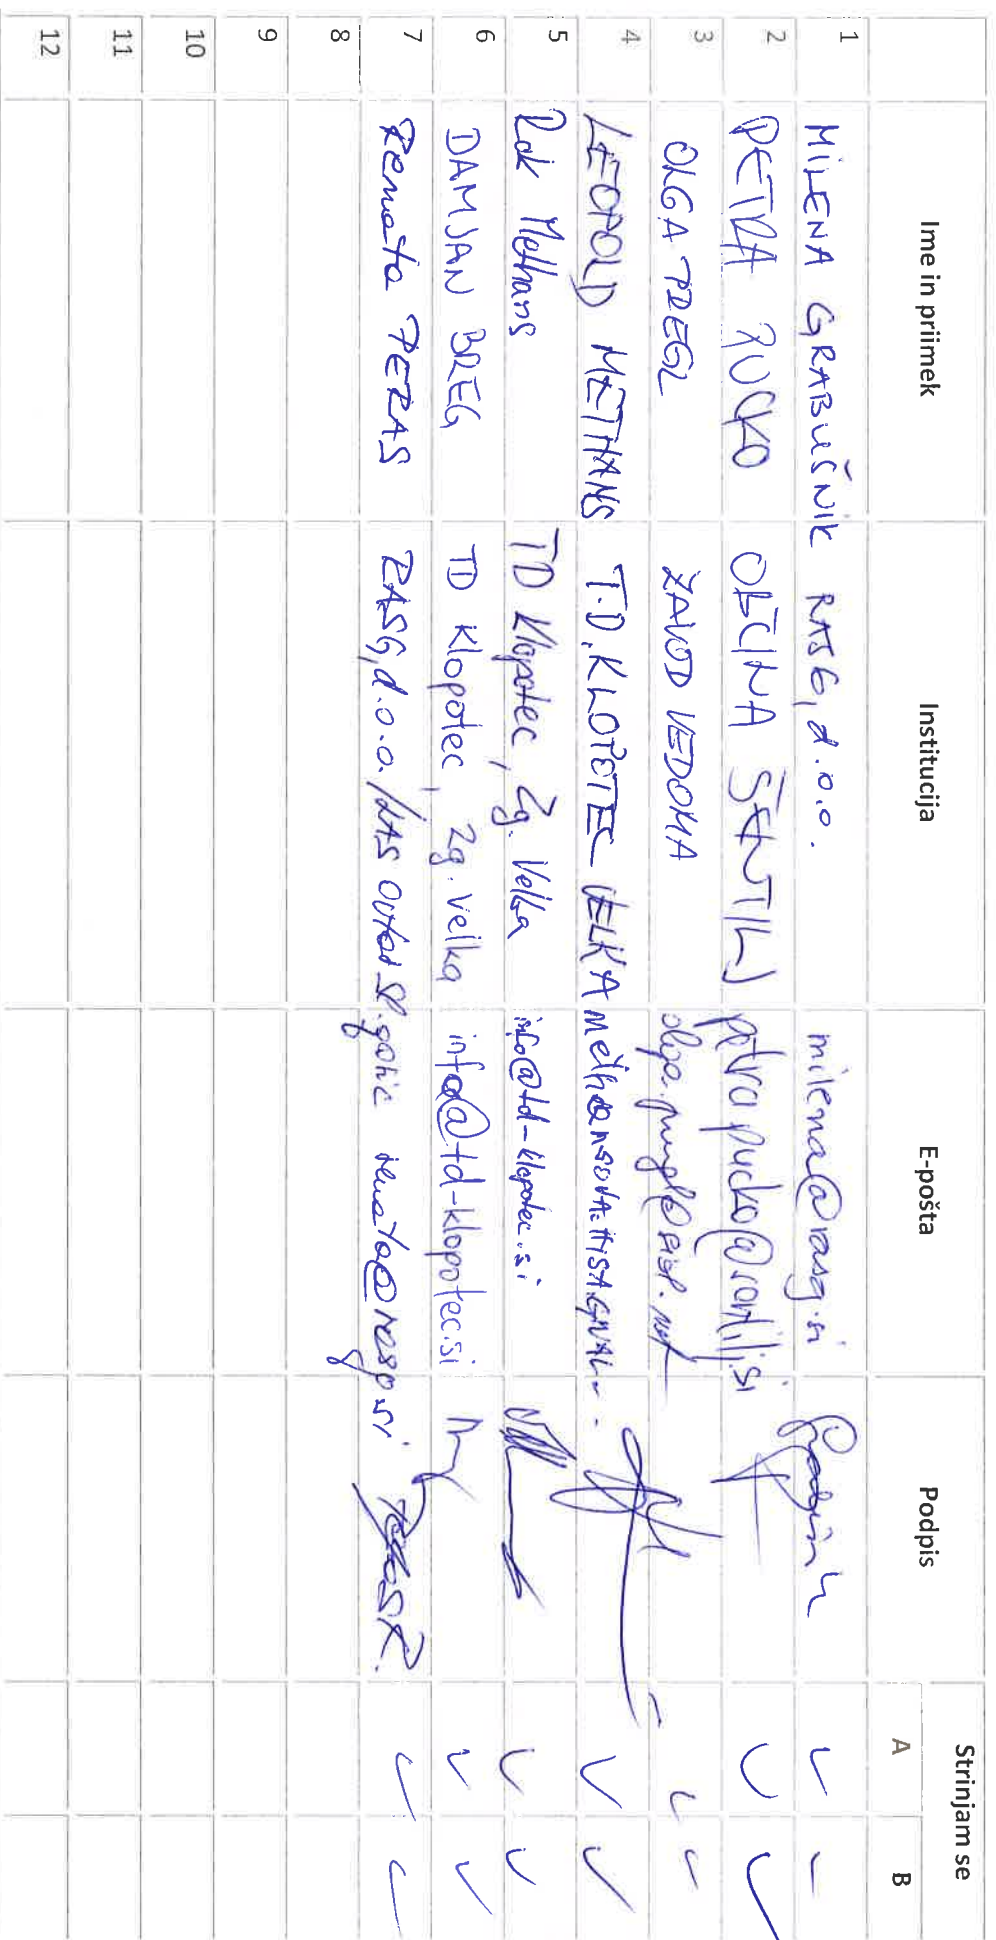 Ime in priimek Institucija E-pošta Podpis Strinjam se
A B
1 MILENA GRABUŠNIK RASG, d.o.o. milena@rasg.si
2 PETRA PUCKO OBČINA ŠENTILJ petra.pucko@sentilj.si
3 OLGA PREGL ZAVOD VEDOMA
4 LEOPOLD METHANS T.D. KLOPOTEC VELKA
5 Rok Methans TD Klopotec, Zg. Velka info@td-klopotec.si
6 DAMJAN BREG TD Klopotec, Zg. Velka info@td-klopotec.si
7 Renata PERAS RASG, d.o.o. /LAS renata@rasg.si
8
9
10
11
12